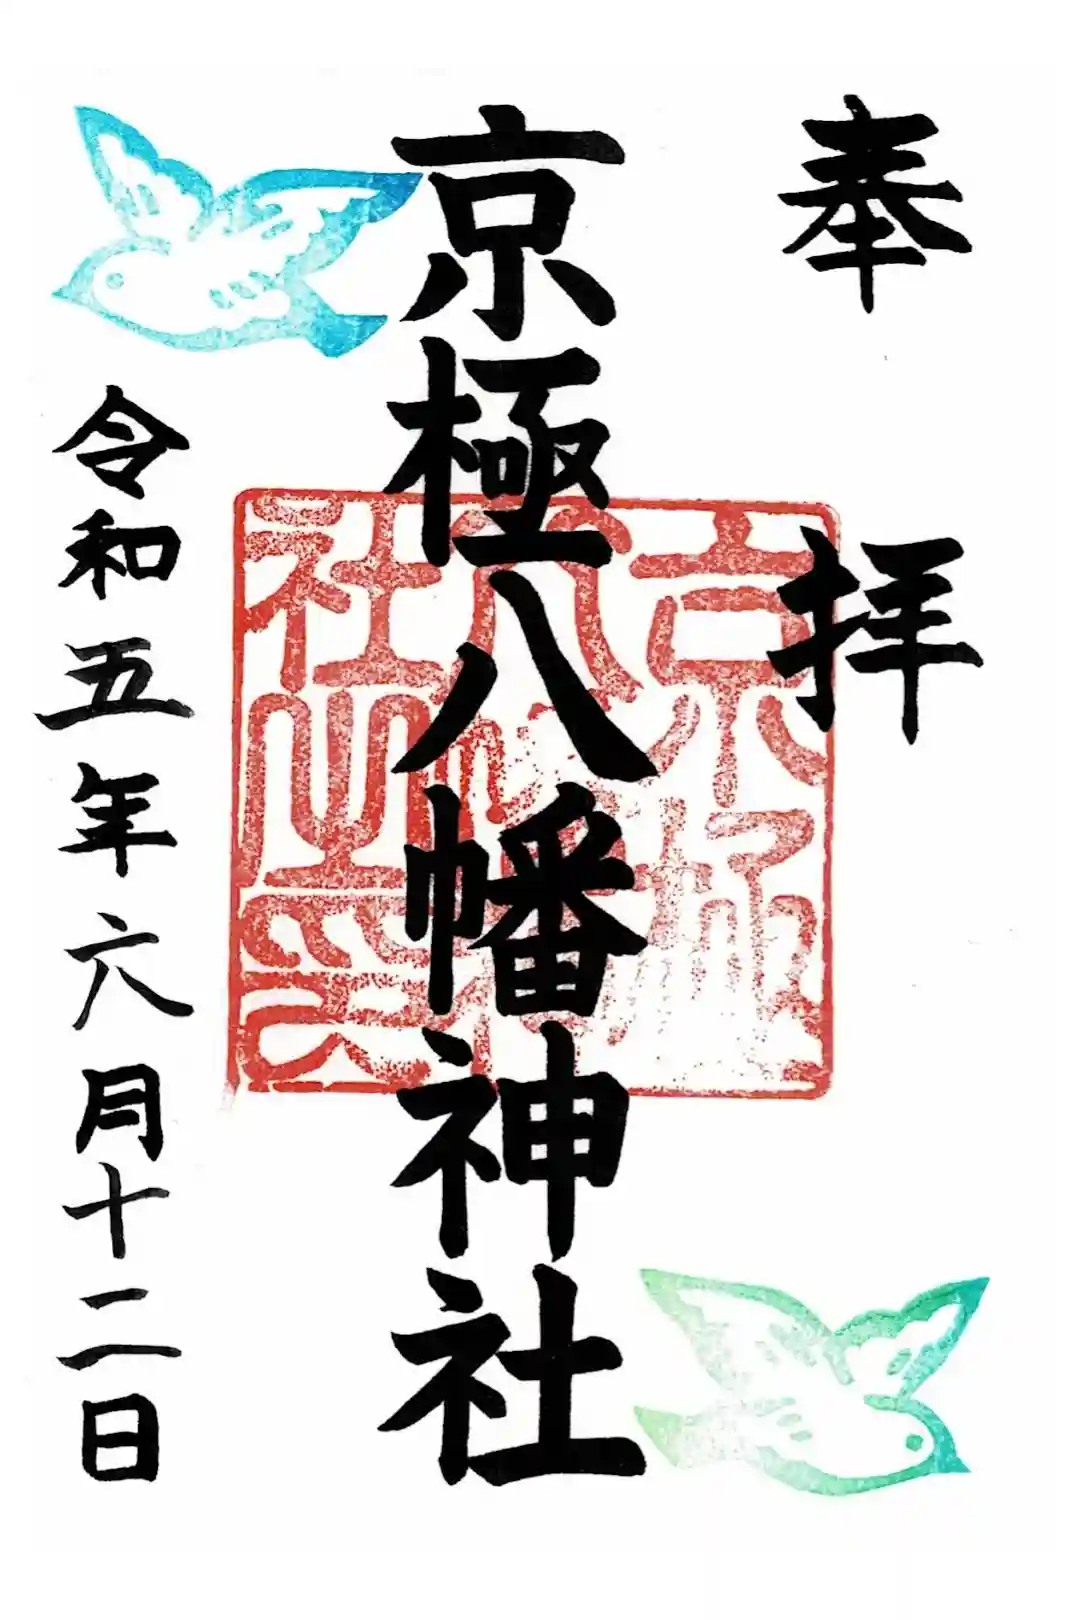 奉拝
京極八幡神社
京極八幡神社之印
令和五年六月十二日